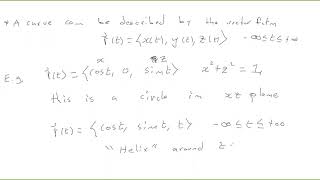 * A curve can be described by the vector fctn
r⃗(t) = ⟨x(t), y(t), z(t)⟩ -∞≤t≤+∞
x z
E.g. r⃗(t) = ⟨cost, 0, sint⟩ x²+z² = 1,
this is a circle in xz plane
r⃗(t) = ⟨cost, sint, t⟩ -∞≤t≤+∞
"Helix" around z